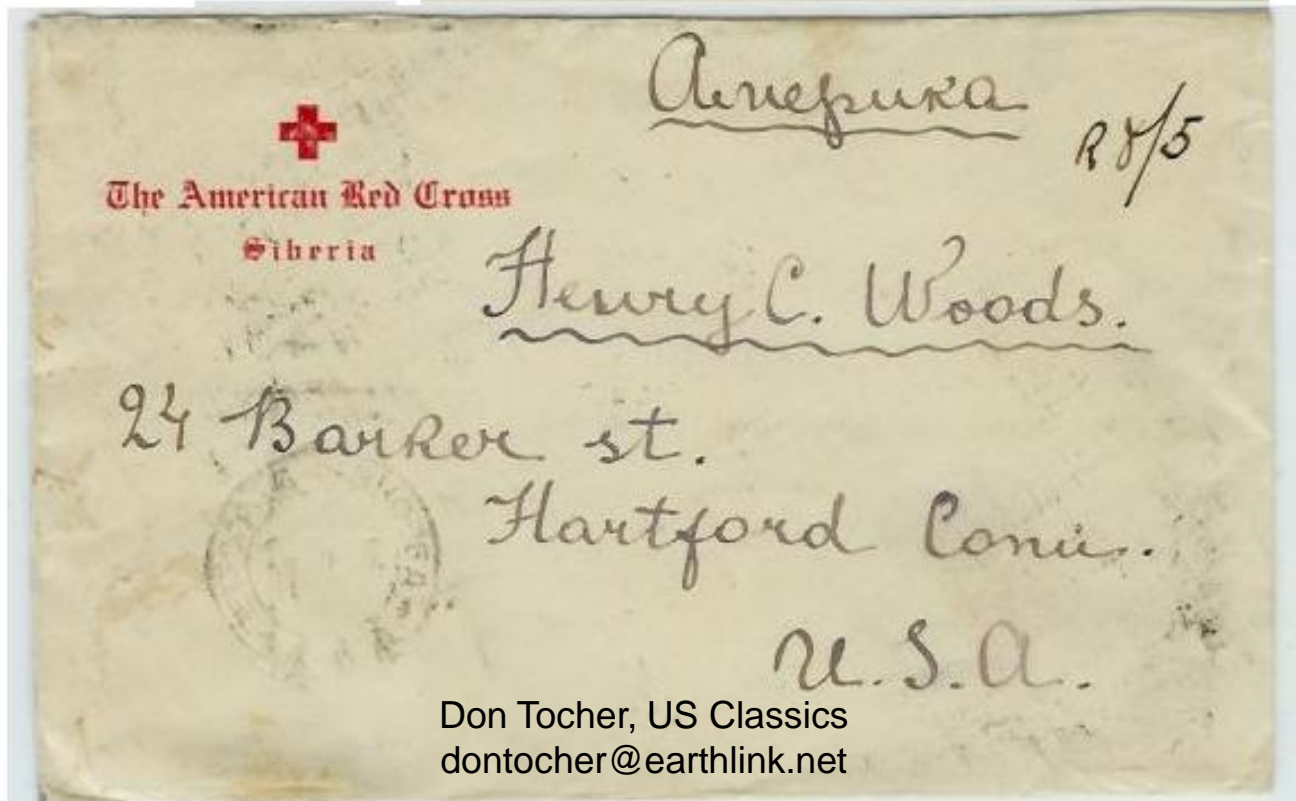 Америка
R 8/5
The American Red Cross
Siberia
Henry C. Woods.
24 Barker st.
Hartford Conn.
U.S.A.
Don Tocher, US Classics
dontocher@earthlink.net